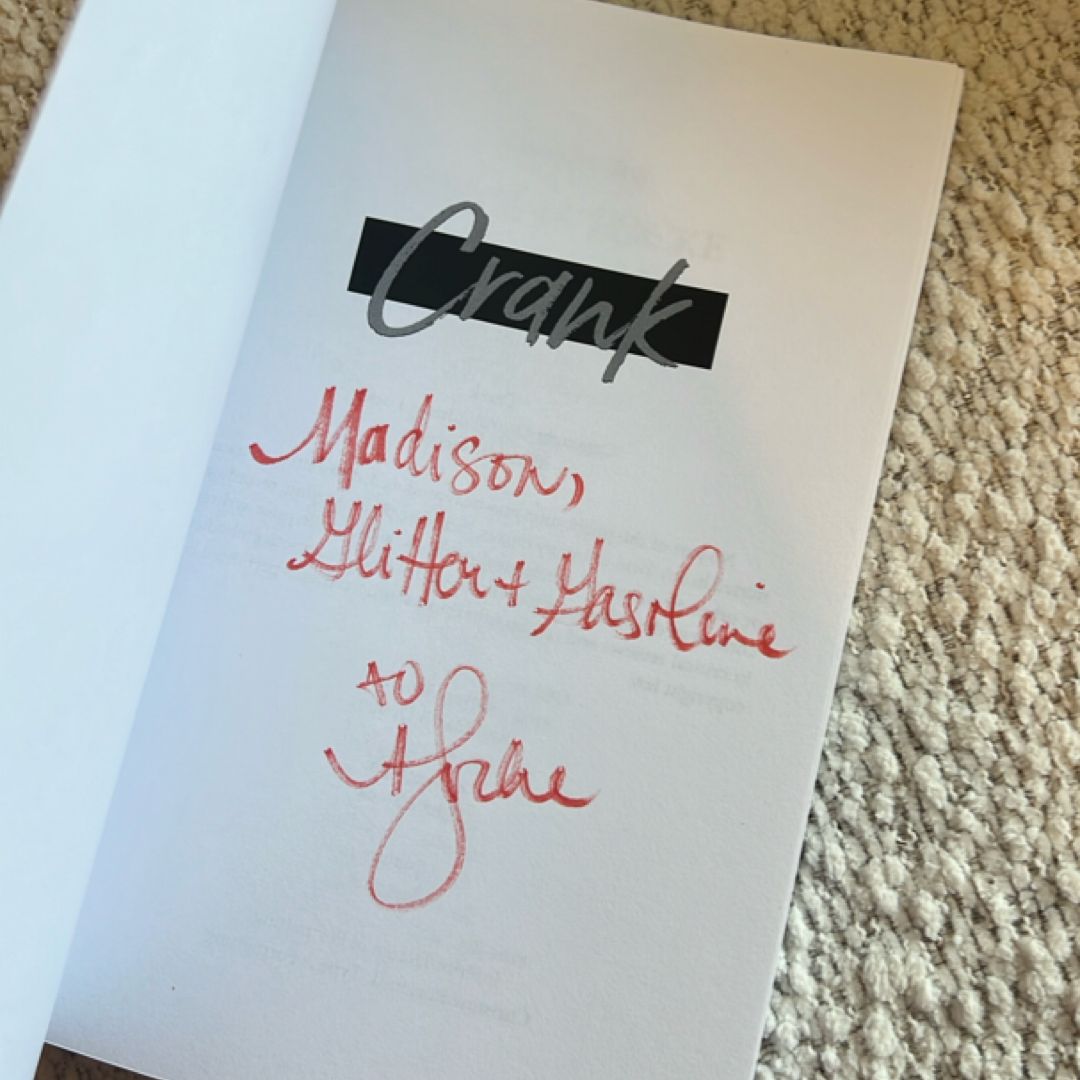 Crank
Madison,
Glitter + Gasoline
xo